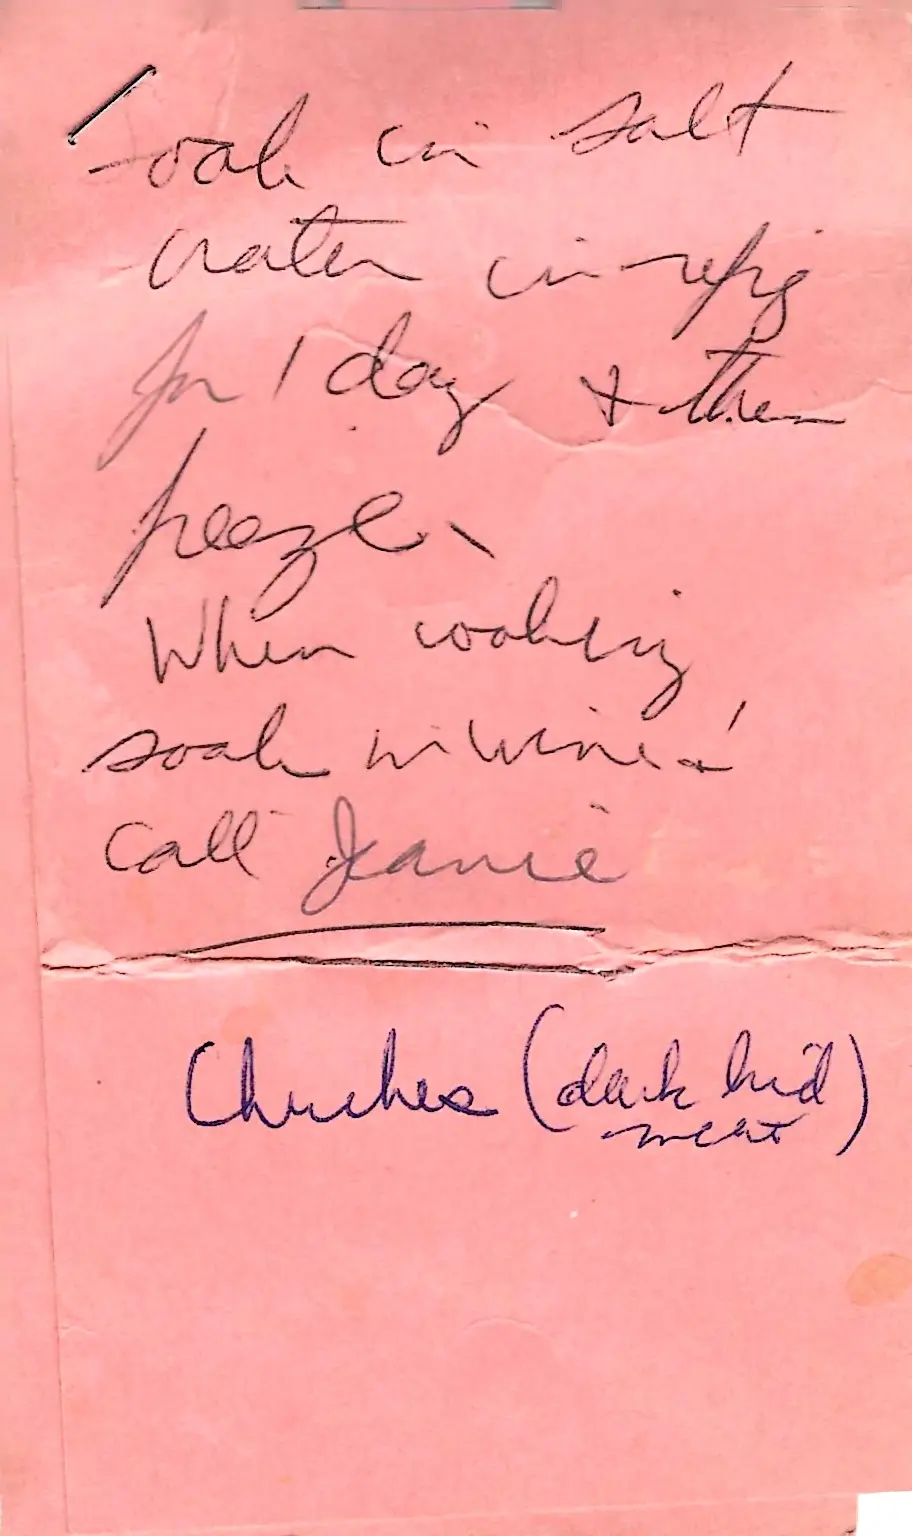 soak in salt
water in refrig
for 1 day & then
freeze.
When cooking
soak in wine &
Call Jeanie
(dark bird)
meat